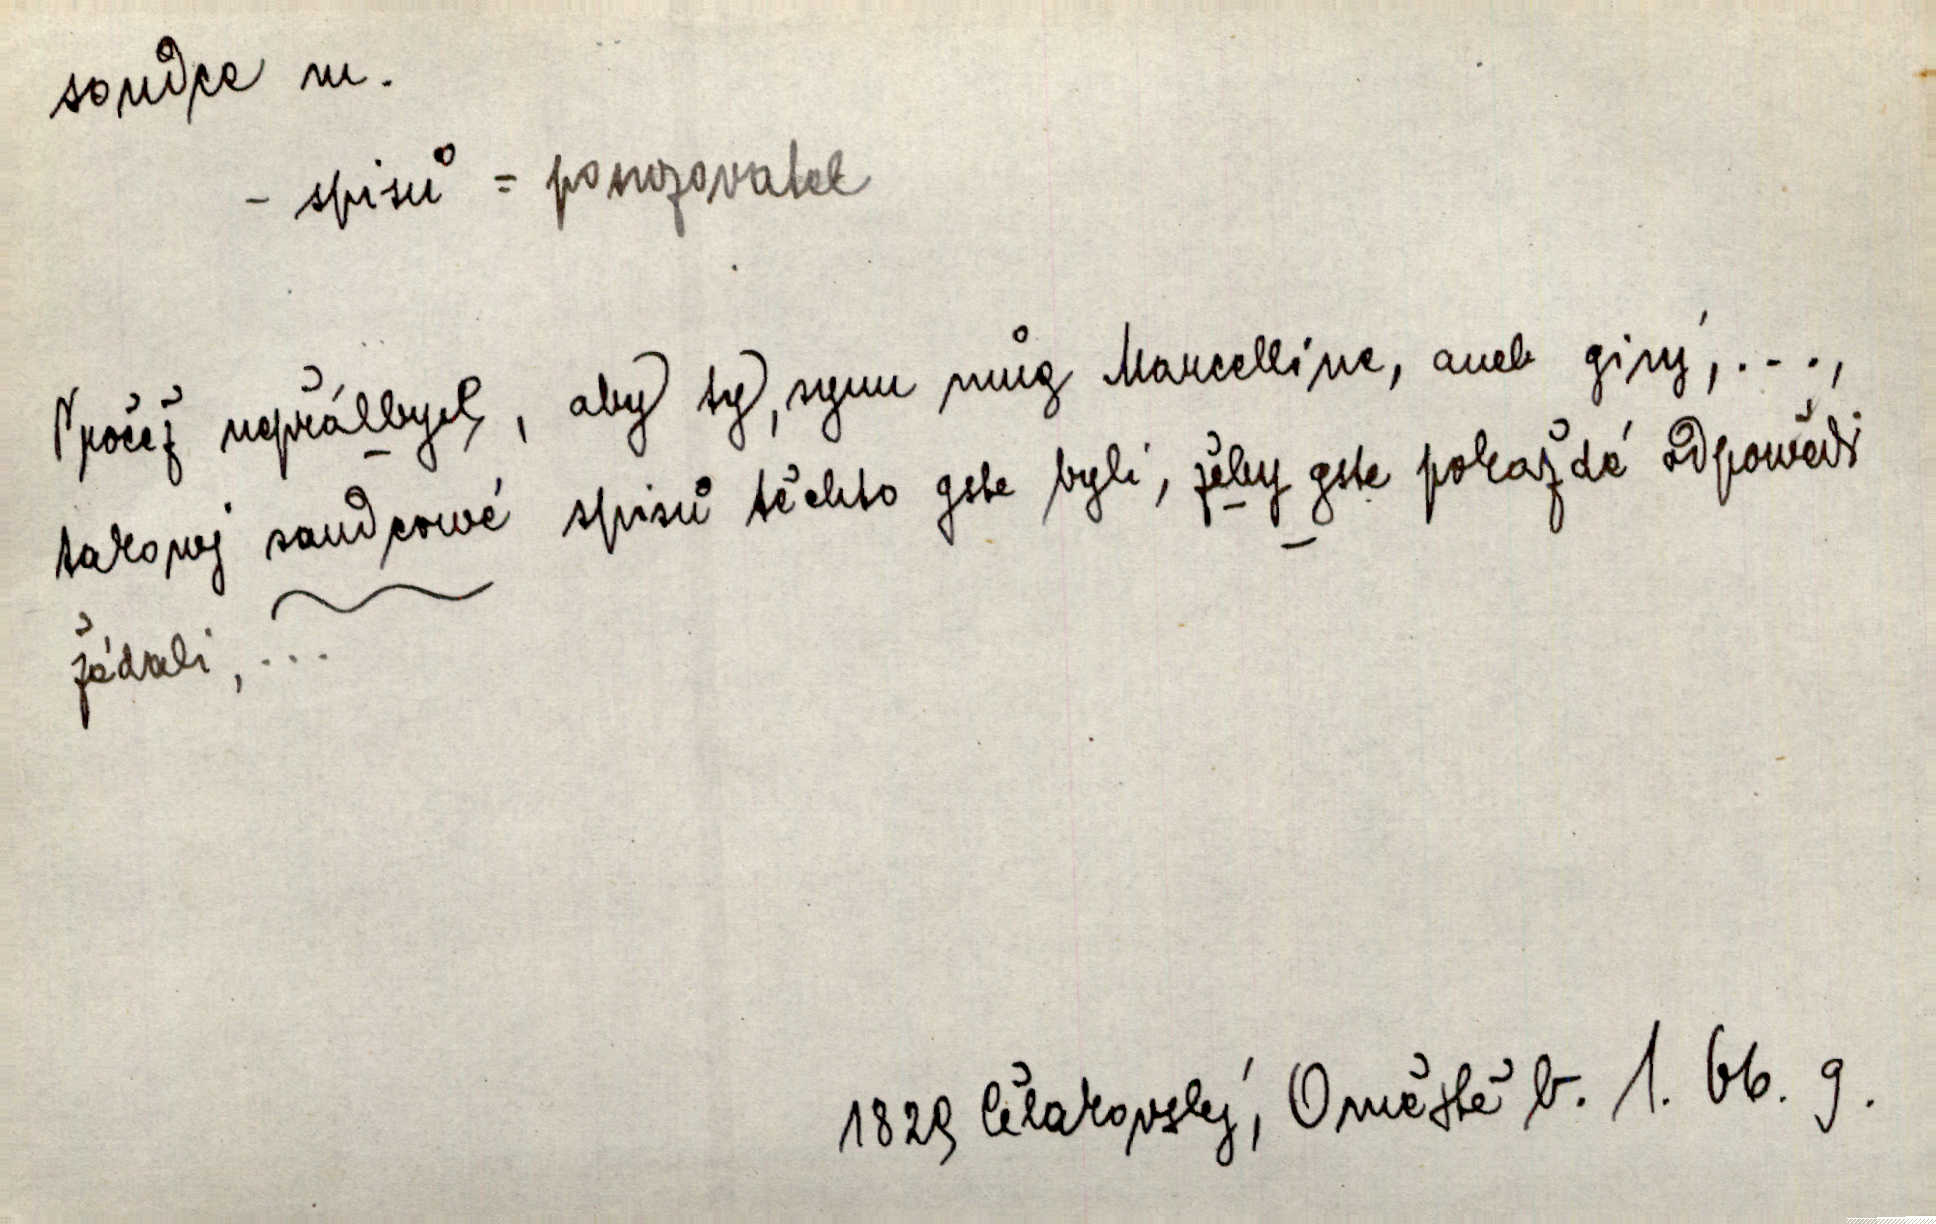 soudce m.
- spisů = posuzovatel
Pročež nepřálbych, aby ty, synu můg Marcelline, aneb giný, . - .,
takowj saudcowé spisů těchto gste byli, žěby gste pokaždé odpowědi
žádali, ...
1829 Čelakovský, O městě b. 1. 66. 9.